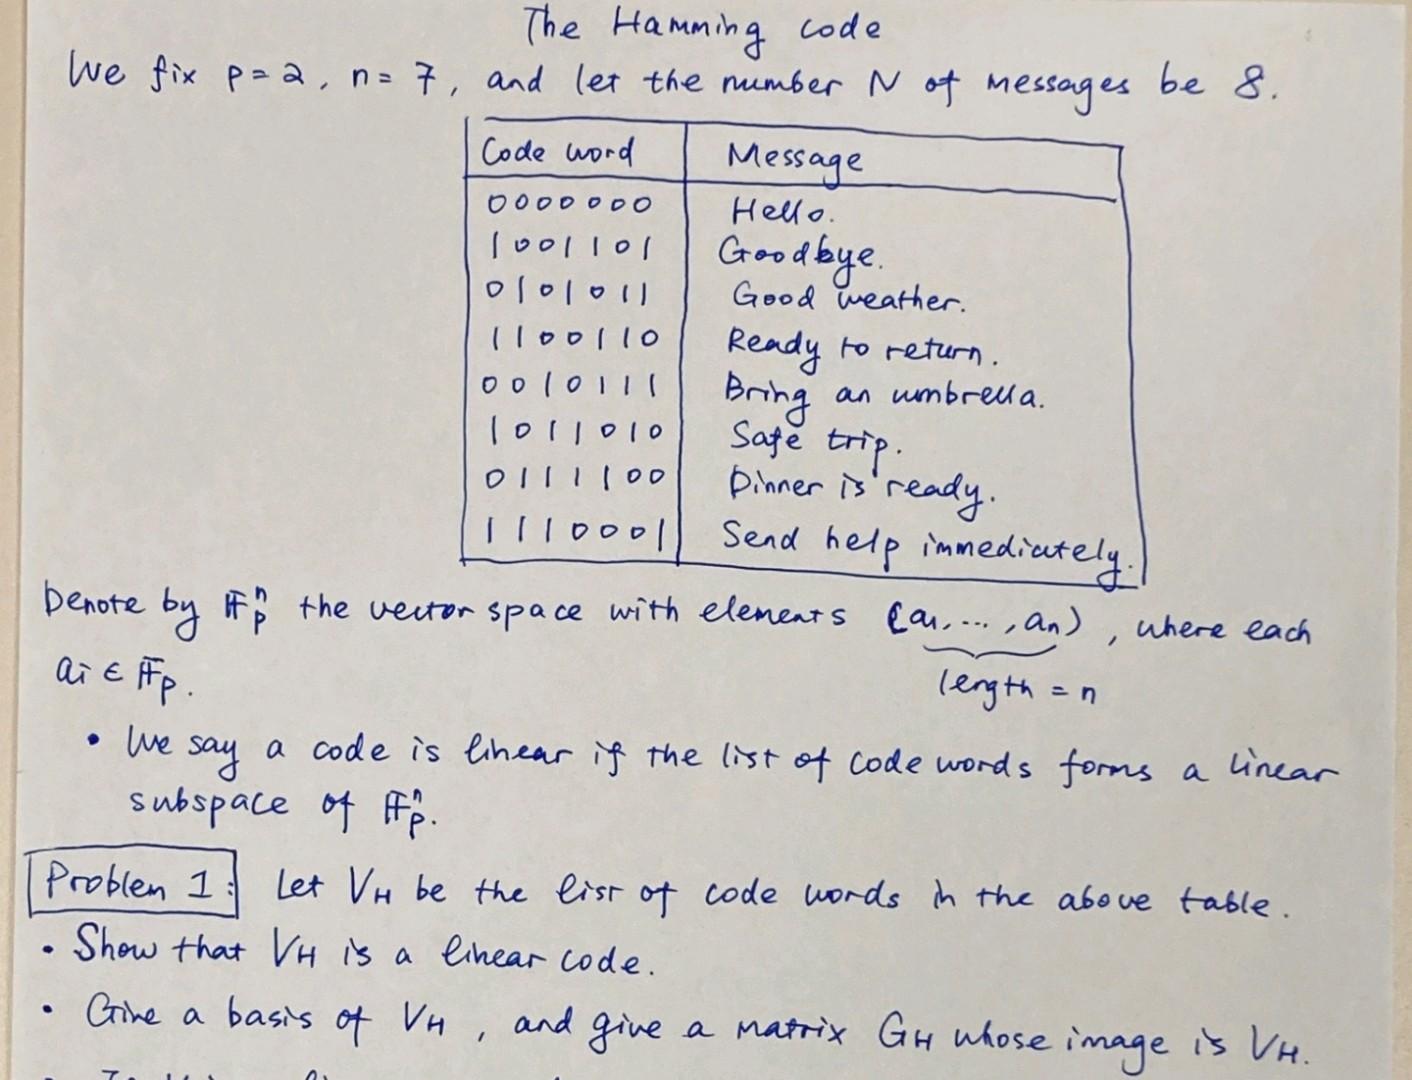 The Hamming code
We fix p = 2, n = 7, and let the number N of messages be 8.
Code word Message
0000000 Hello.
1001101 Goodbye.
0101011 Good weather.
1100110 Ready to return.
0010111 Bring an umbrella.
1011010 Safe trip.
0111100 Dinner is ready.
1110001 Send help immediately.
Denote by 𝔽ₚⁿ the vector space with elements (a₁, ..., aₙ), where each
length = n
aᵢ ∈ 𝔽ₚ.
• We say a code is linear if the list of code words forms a linear
subspace of 𝔽ₚⁿ.
Problem 1: Let V_H be the list of code words in the above table.
• Show that V_H is a linear code.
• Give a basis of V_H, and give a matrix G_H whose image is V_H.